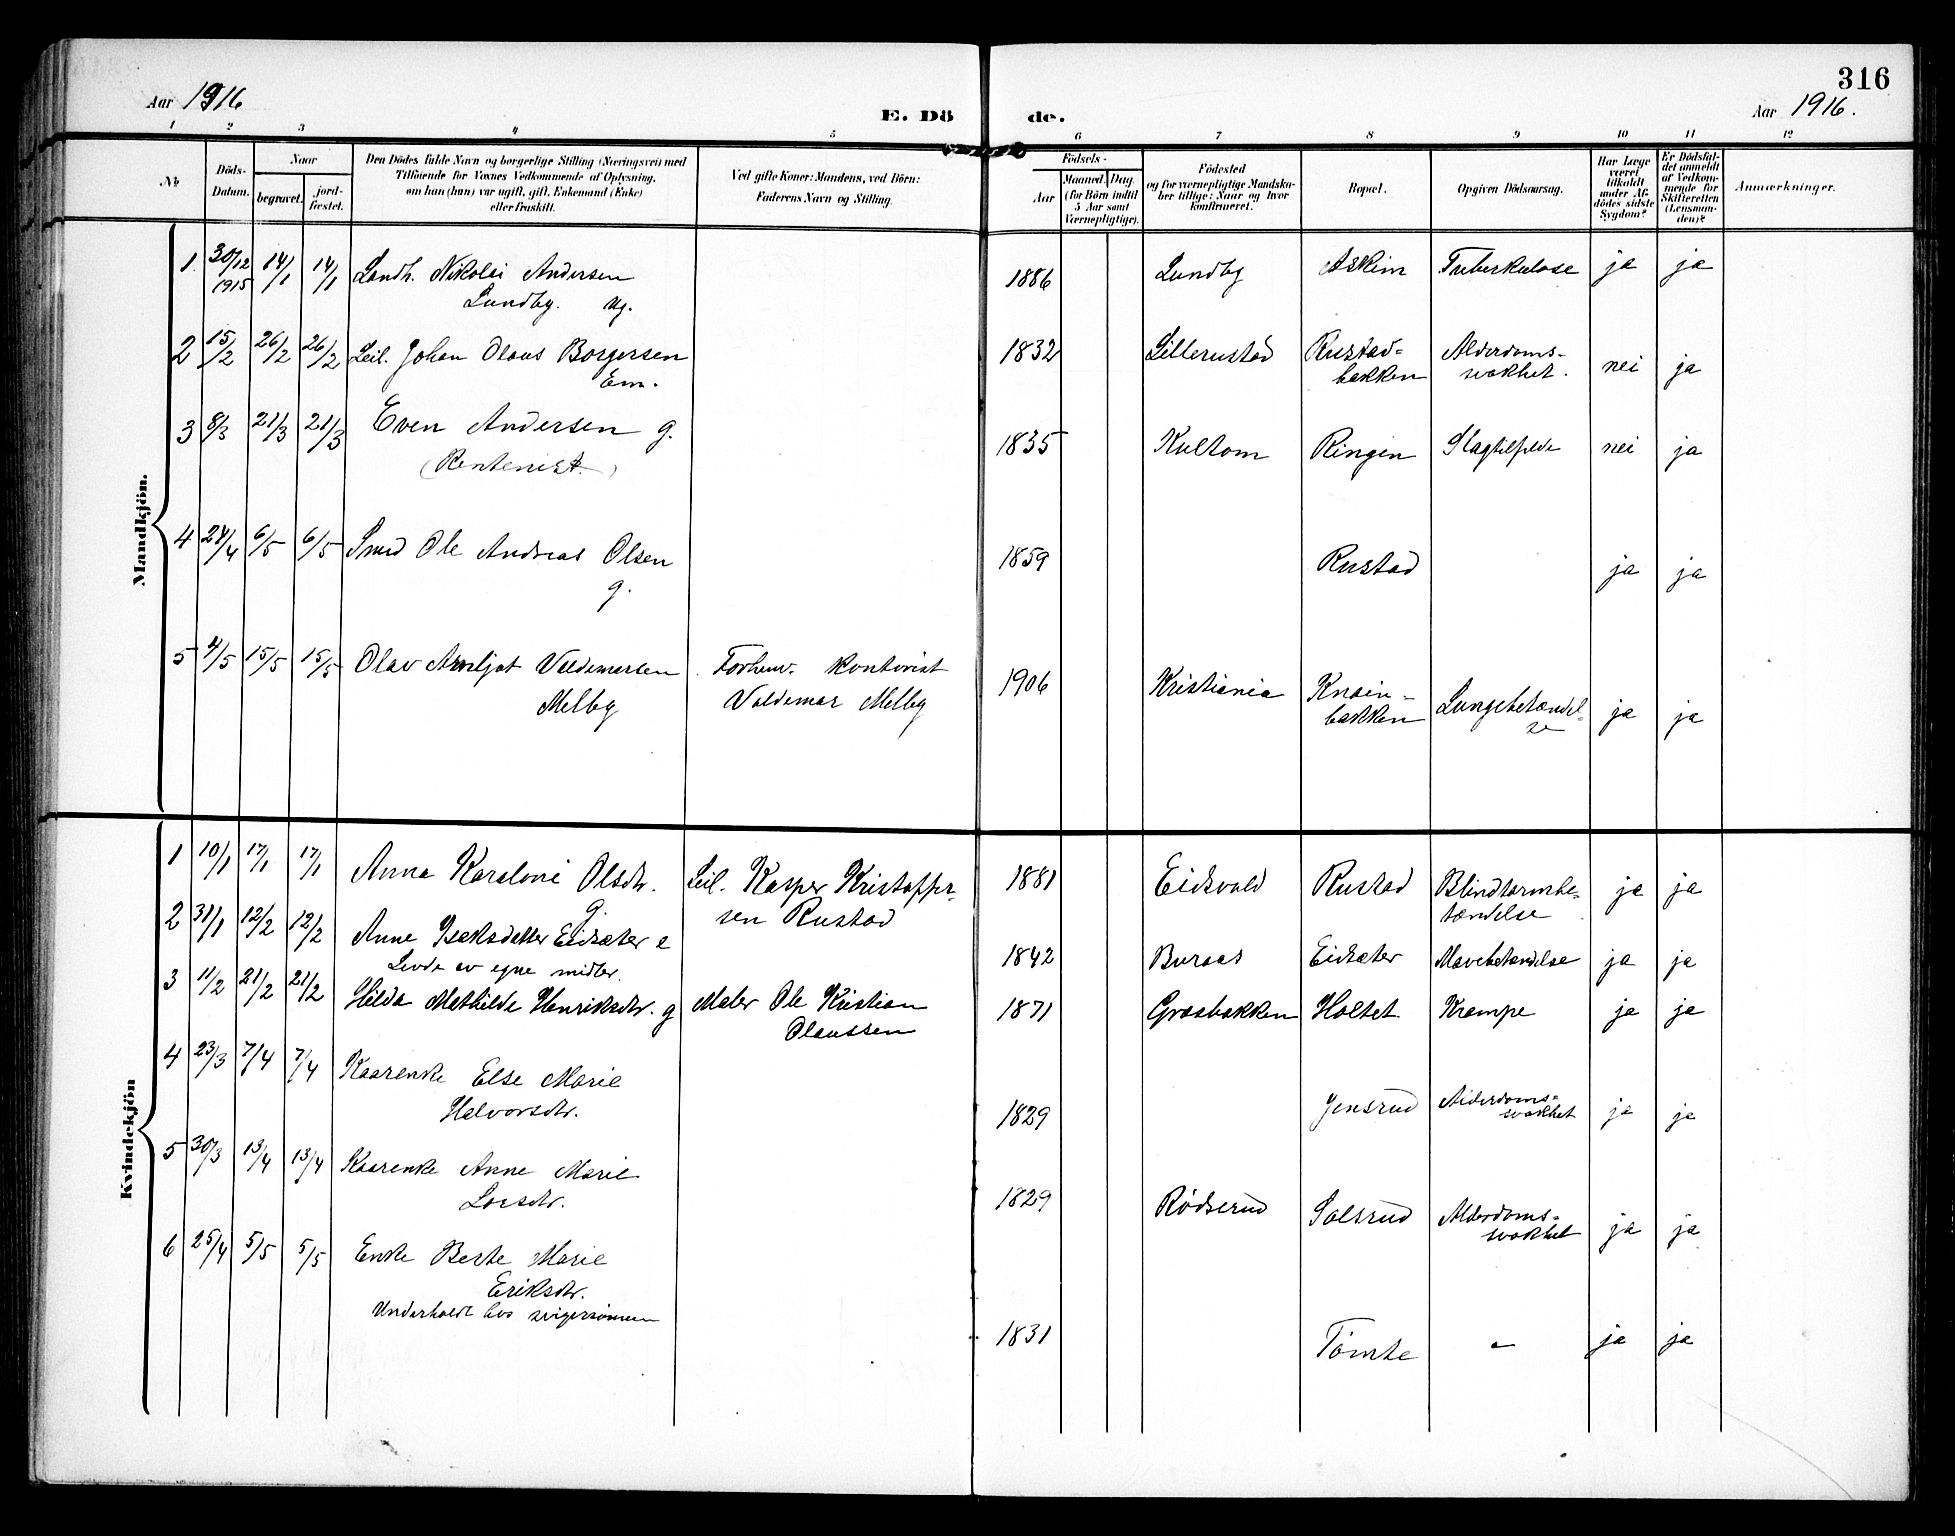 316
Aar 1916
E. Dö
de.
Aar 1916.
1 2 3 4 5 6 7 8 9 10 11 12
No
Döds-
Datum.
Naar
begravet.
jord-
fæstet.
Den Dödes fulde Navn og borgerlige Stilling (Næringsvei) med
Tilföiende for Voxnes Vedkommende af Oplysning,
om han (hun) var ugift, gift, Enkemand (Enke)
eller fraskilt.
Ved gifte Koner: Mandens, ved Börn:
Faderens Navn og Stilling.
Födsels-
Aar
Maaned. Dag
(for Börn indtil
5 Aar samt
Værnepligtige).
Födested
og for værnepligtige Mandska-
ber tillige: Naar og hvor
konfirmeret.
Bopæl.
Opgiven Dödsaarsag.
Har Læge
været
tilkaldt
under Af-
dödes sidste
Sygdom?
Er Dödsfal-
det anmeldt
af Vedkom-
mende for
Skifteretten
(Lensman-
den)?
Anmærkninger.
Mandkjön.
1. 30/12 14/1 14/1 Landh. Nikolai Andersen 1886 Lundby Askim Tuberkulose ja ja
1915 Lundby. ug.
2 15/2 26/2 26/2 Leil. Johan Olaus Borgersen 1832 Lillerustad Rustad- Alderdoms- nei ja
Em. bakken svakhet.
3 8/3 21/3 21/3 Even Andersen g. 1835 Kultom Ringen Slagtilfælde nei ja
(Rentenist.)
4 24/4 6/5 6/5 Smed Ole Andreas Olsen 1859 Rustad ja ja
g.
5 4/5 15/5 15/5 Olav Arnljot Valdemarsen Forhenv. kontorist 1906 Kristiania Knain- Lungebetændel- ja ja
Melby Valdemar Melby bakken se
Kvindekjön
1 10/1 17/1 17/1 Anna Karoline Olsdtr. Leil. Kasper Kristoffer- 1881 Eidsvold Rustad Blindtarmbe- ja ja
g. sen Rustad tændelse
2 31/1 12/2 12/2 Anne Isaksdatter Eidsæter e 1842 Buraas Eidsæter Mavebetændelse ja ja
Levde av egne midler.
3 11/2 21/2 21/2 Hilda Mathilde Henriksdtr. g Maler Ole Kristian 1871 Græsbakken Holtet Krampe ja ja
Olaussen
4 23/3 7/4 7/4 Kaarenke Else Marie 1829 Jensrud Alderdoms- ja ja
Halvorsdtr. svakhet
5 30/3 13/4 13/4 Kaarenke Anne Marie 1829 Rødserud Solsrud Alderdoms- ja ja
Larsdtr. svakhet
6 25/4 5/5 5/5 Enke Berte Marie 1831 Tømte - ja ja
Eriksdtr.
Underholdt hos svigersønnen